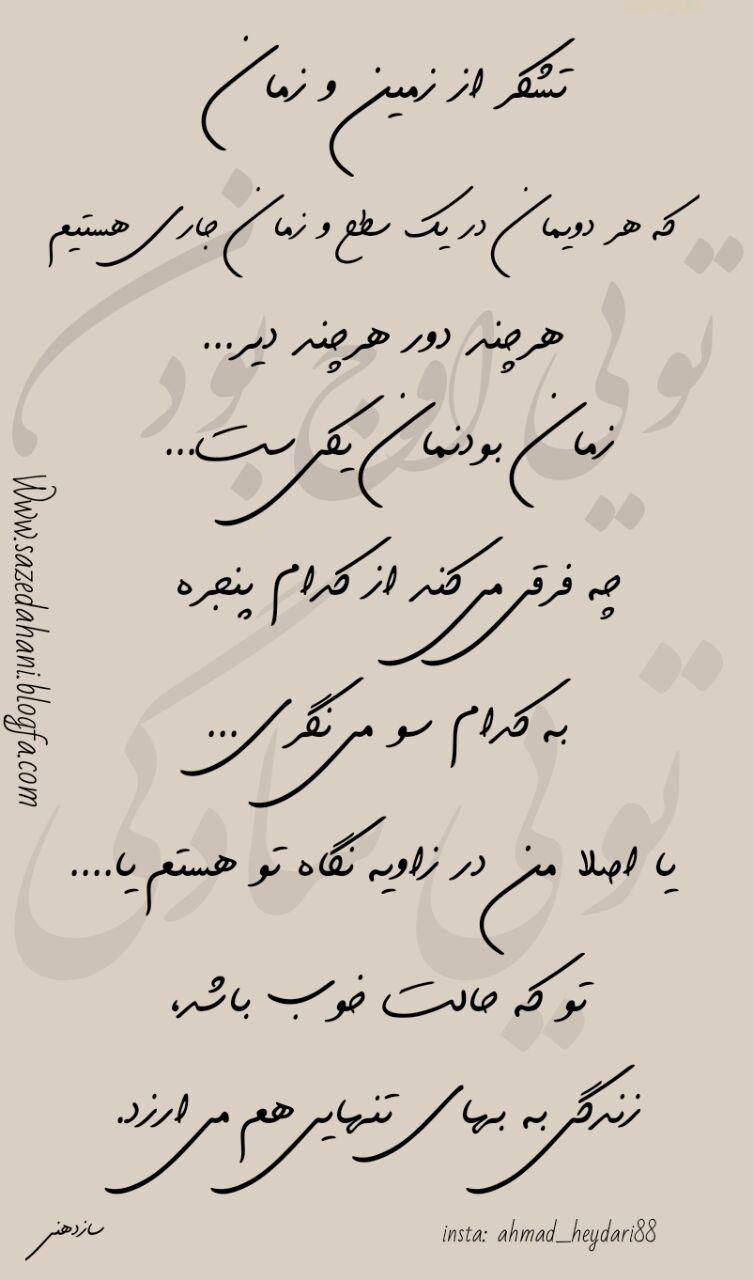 تشکر از زمین و زمان
که هر دویمان در یک سطح و زمان جاری هستیم
هرچند دور هرچند دیر...
زمان بودنمان یکی ست...
چه فرقی می کند از کدام پنجره
به کدام سو می نگری...
یا اصلا من در زاویه نگاه تو هستم یا....
تو که حالت خوب باشد،
زندگی به بهای تنهایی هم می ارزد.
سازدهنی
insta: ahmad_heydari88
Www.sazedahani.blogfa.com
تویی اوج بودن
تویی سادگی